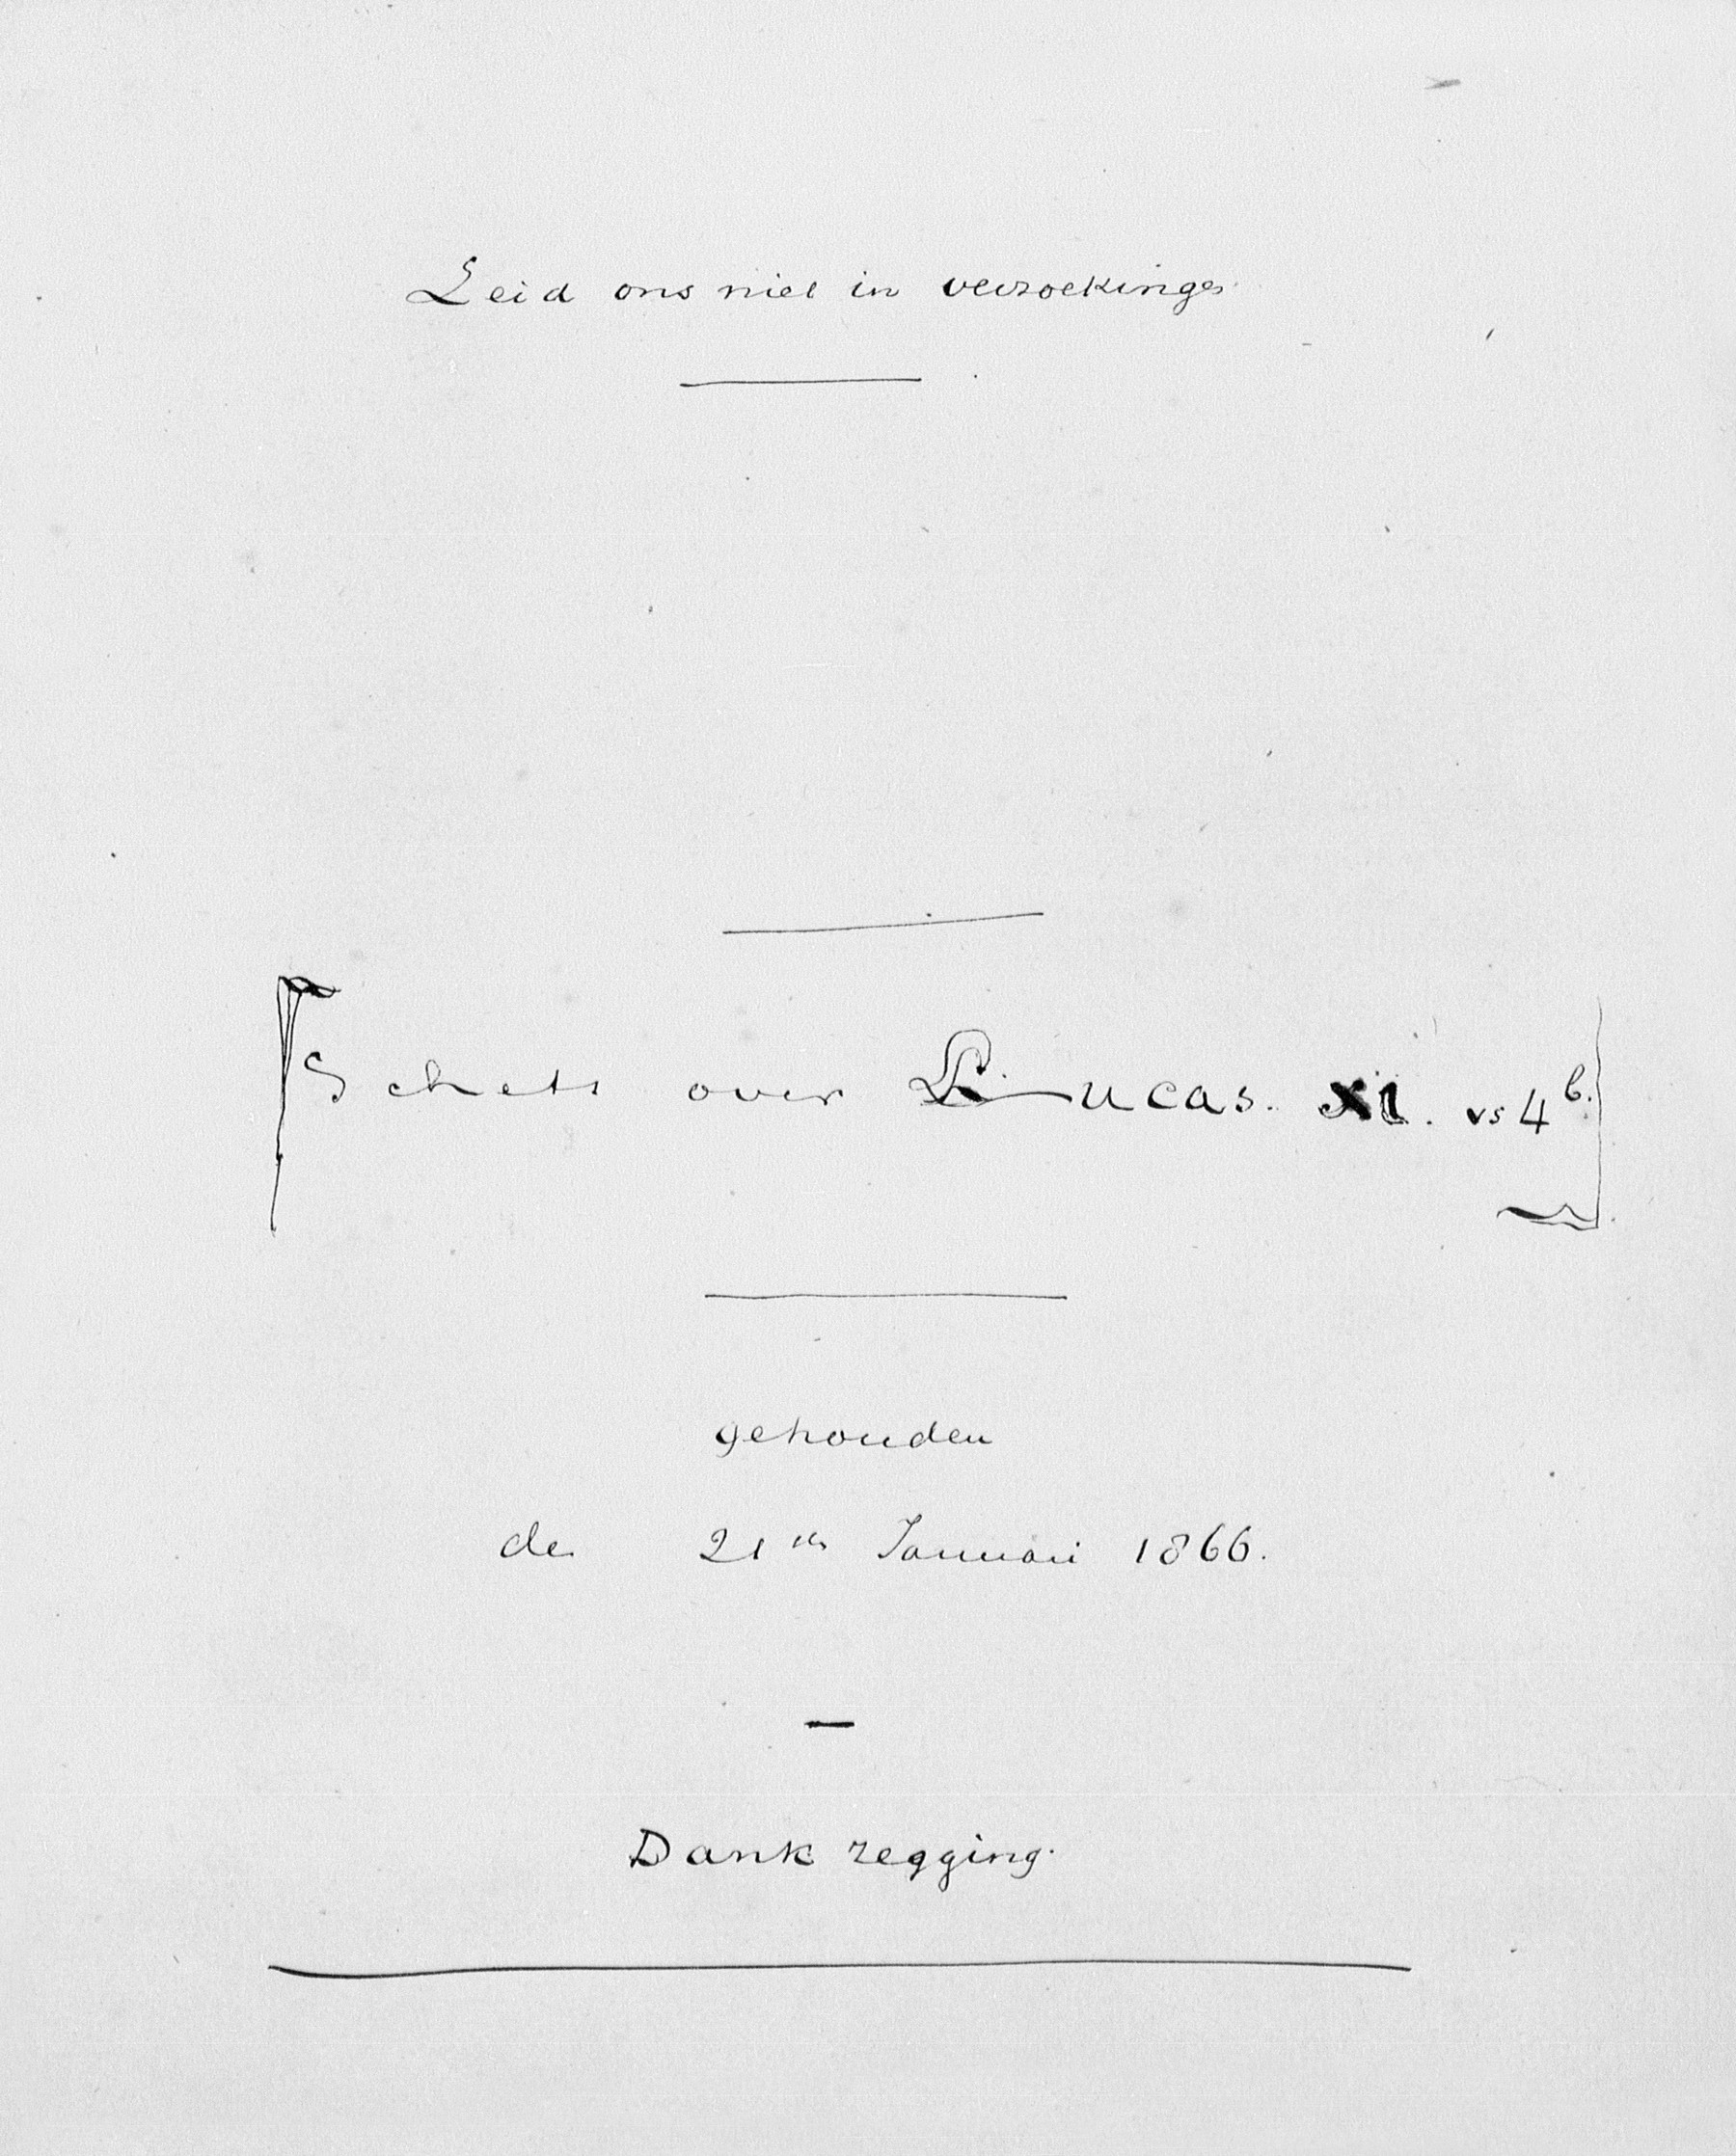 Leid ons niet in verzoekingen
Schets over Lucas. XI. vs 4 b.
gehouden
de 21en Januari 1866.
Dank zegging.